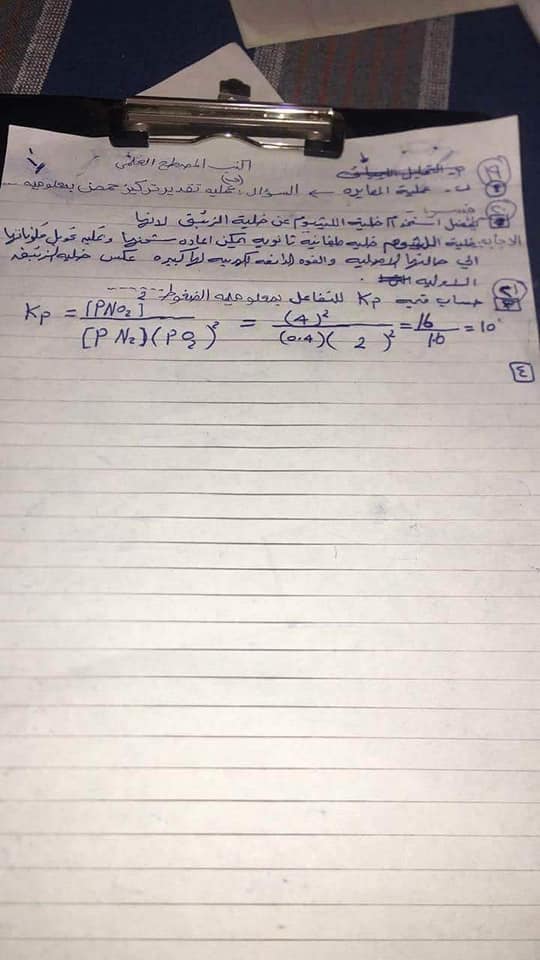 اكتب المصطلح العلمى
١
ب- عملية المعايره ← السؤال: عملية تقدير تركيز حمض بمعلوميه ---
٢ فسر
يفضل استخدام خلية الليثيوم عن خلية الزئبق لانها
الاجابه: خلية الليثيوم خلية جلفانية ثانوية يمكن اعاده شحنها وعليه تحويل مكوناتها
الي حالتها الاوليه والقوه الدافعه الكهربيه لها كبيره عكس خليه الزئبق
الاوليه
٣ حساب قيمه Kp للتفاعل بمعلوميه الضغوط -----
Kp = [PNO₂]² / [PN₂](PO₂)² = (4)² / (0.4)(2)² = 16 / 1.6 = 10
٤